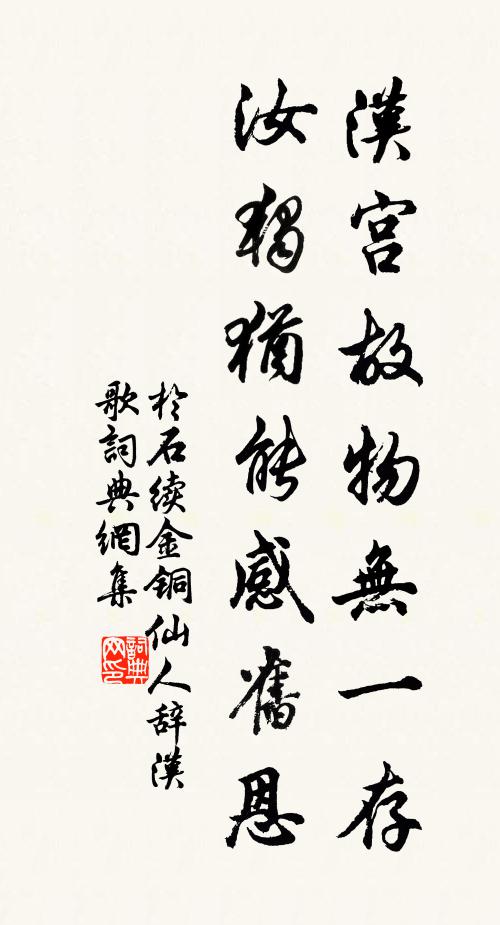 漢宮故物無一存
汝獨猶能感舊恩
於石续金铜仙人辞漢
歌詞典網集
詞典
网印